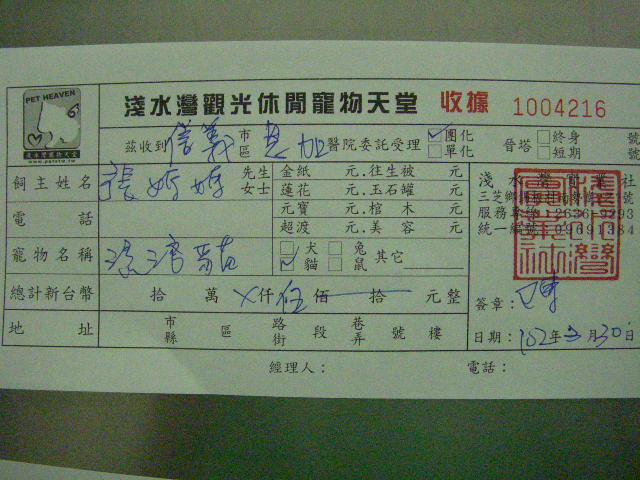 PET HEAVEN
淺水灣寵物天堂
淺水灣觀光休閒寵物天堂 收據 1004216
茲收到 信義 市區 恩加 醫院委託受理 ✓團化 單化 晉塔 終身 短期 號 號
飼主姓名 張婷婷 先生 女士 金紙 元.往生被 元
蓮花 元.玉石罐 元
電話 元寶 元.棺木 元
超渡 元.美容 元
淺水灣實業社
三芝鄉
服務專線:2636-9293
統一編號:09691384
寵物名稱 淺灣貓 犬 ✓貓 兔 鼠 其它
總計新台幣 拾 萬 ×仟 伍佰 拾 元整
簽章: 陳
地址 市縣 區 路街 段 巷弄 號 樓
日期:102年 月30日
經理人: 電話: